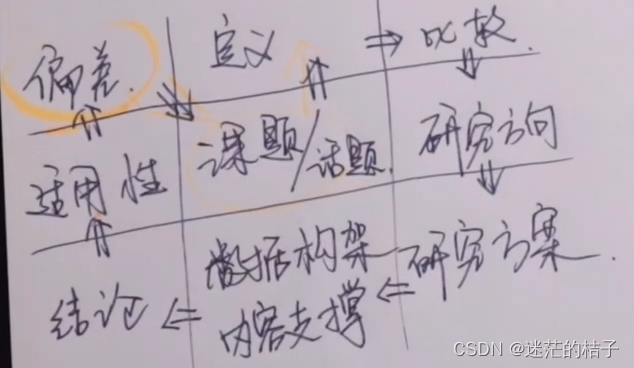 偏差.
定义
⇒ 比较.
适用性
课题/话题.
研究方向
结论
⇐ 数据构架
内容支撑
⇐ 研究方案.
CSDN @迷茫的桔子